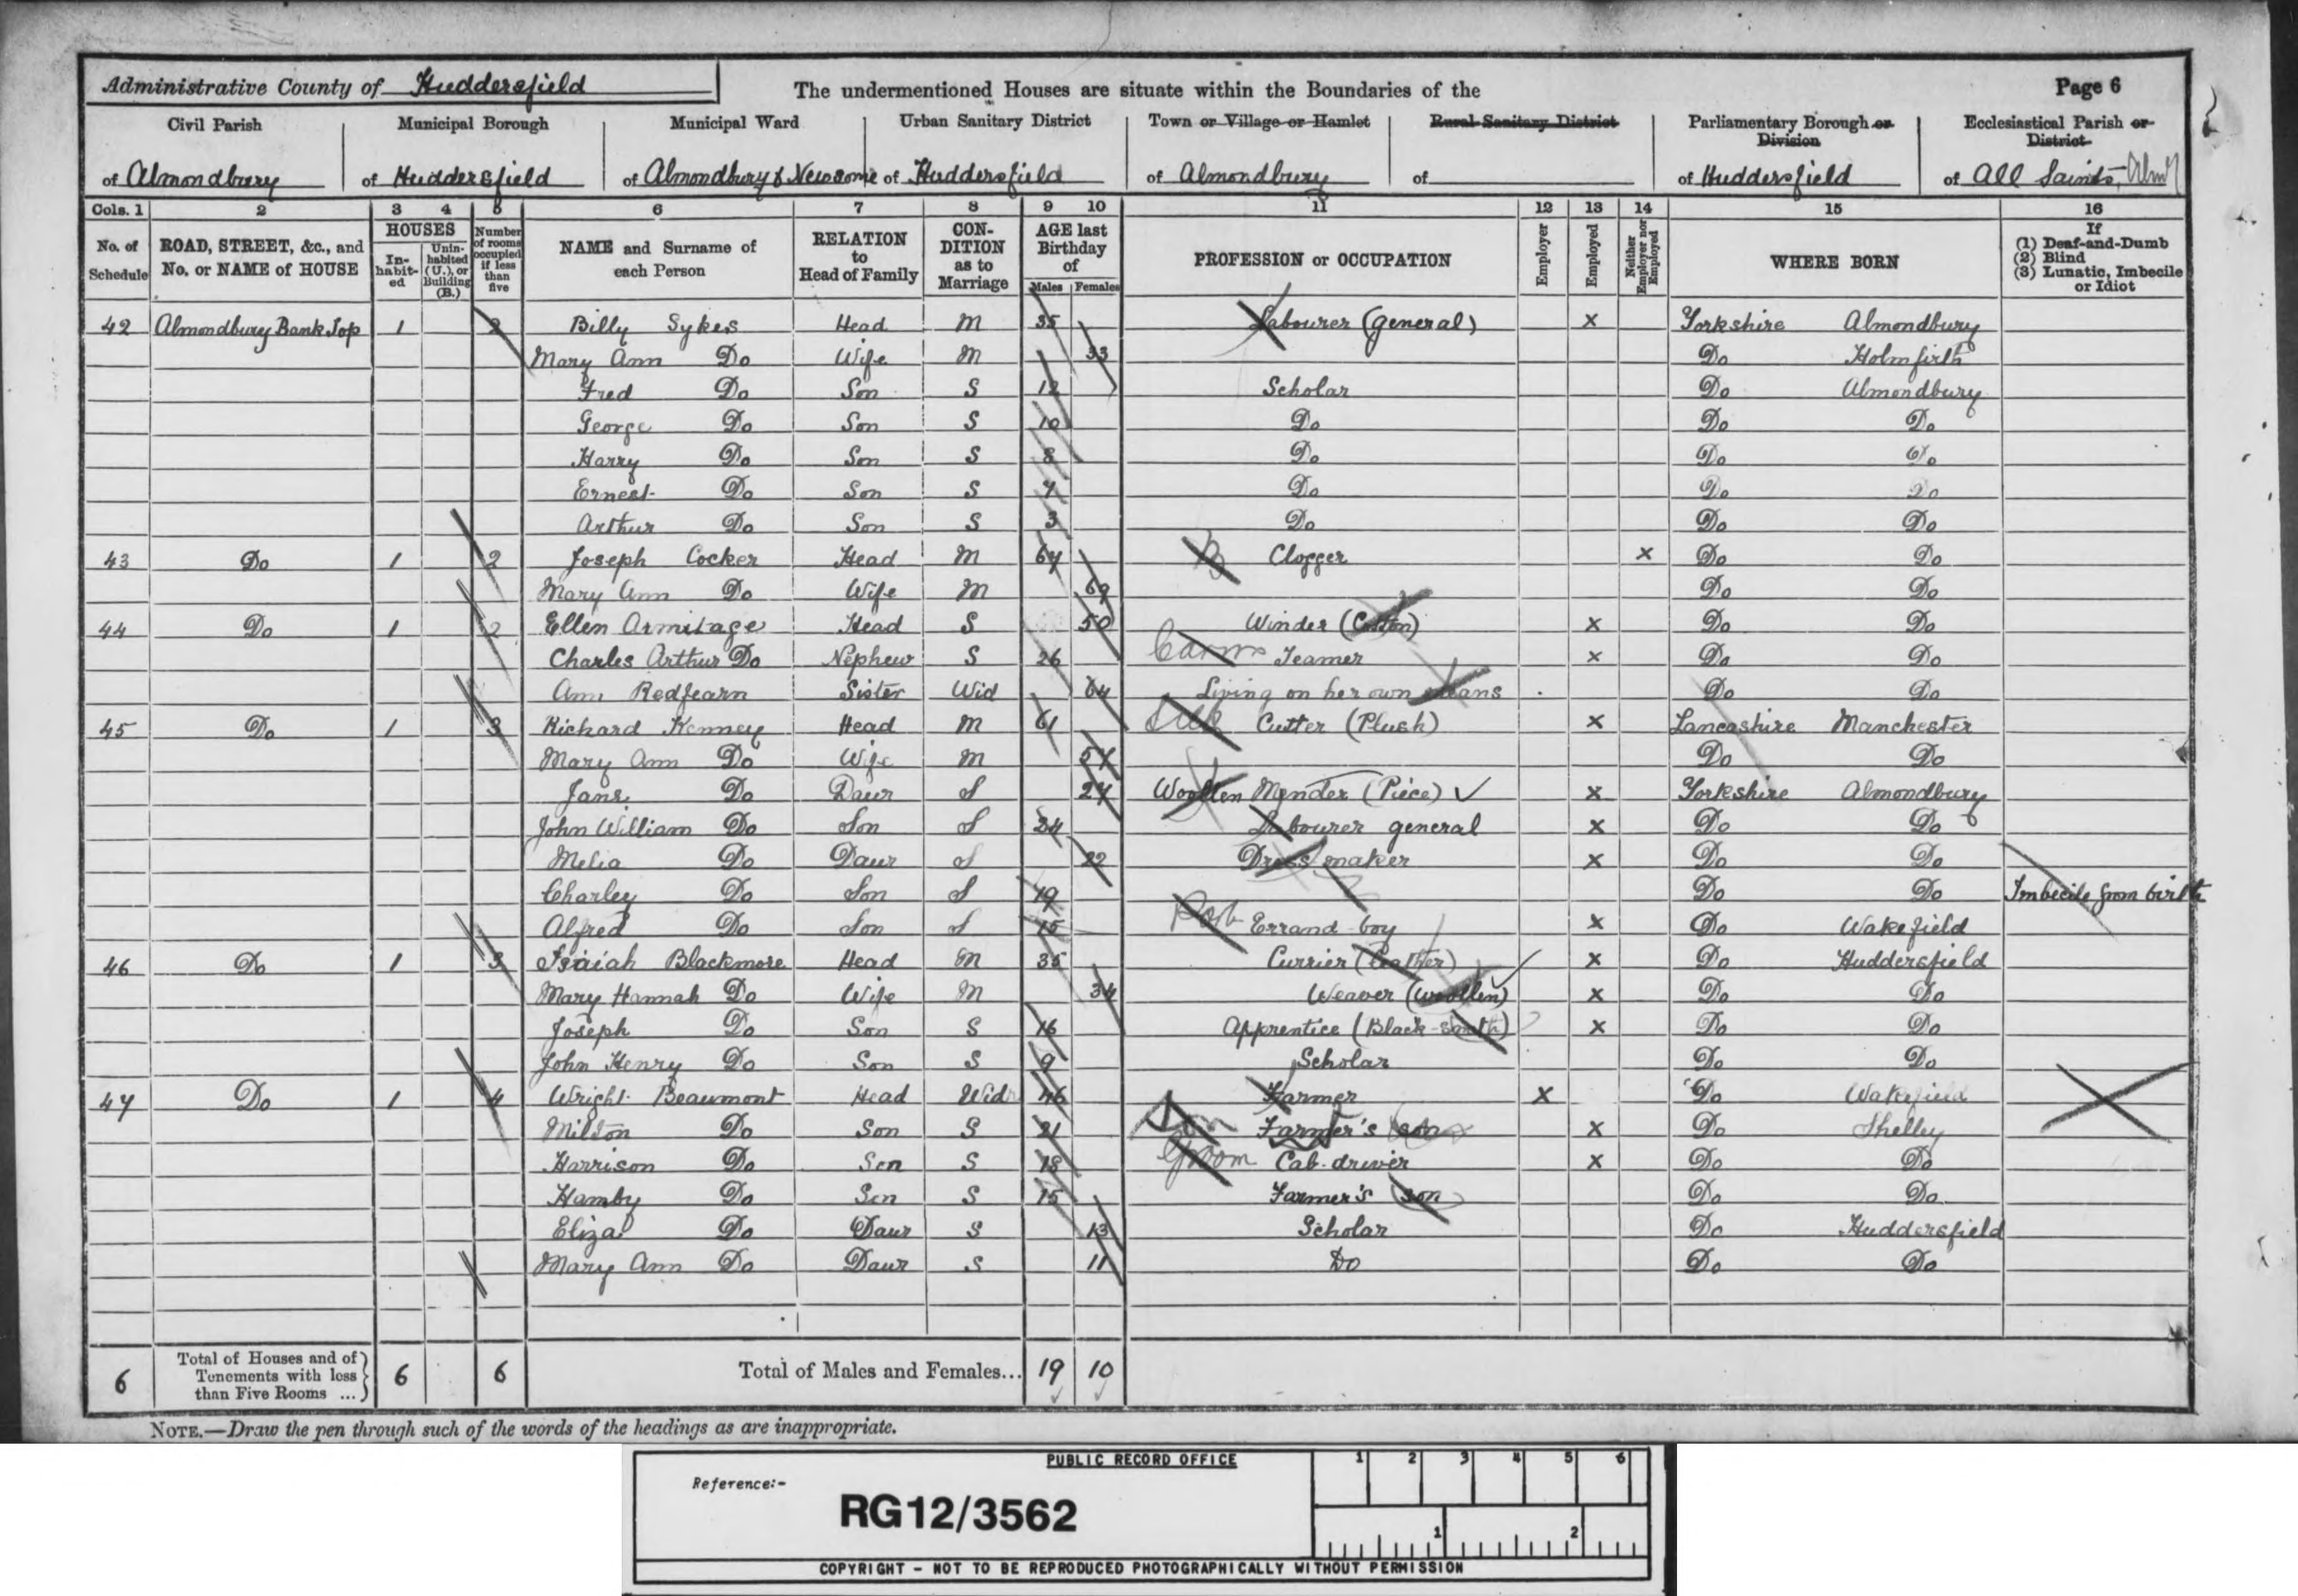 Administrative County of Huddersfield The undermentioned Houses are situate within the Boundaries of the Page 6
Civil Parish Municipal Borough Municipal Ward Urban Sanitary District Town or Village or Hamlet Rural Sanitary District Parliamentary Borough or Division Ecclesiastical Parish or District
of Almondbury of Huddersfield of Almondbury & Newsome of Huddersfield of Almondbury of of Huddersfield of All Saints,
Cols. 1 2 3 4 5 6 7 8 9 10 11 12 13 14 15 16
No. of Schedule ROAD, STREET, &c., and No. or NAME of HOUSE HOUSES In-habit-ed Unin-habited (U.), or Building (B.) Number of rooms occupied if less than five NAME and Surname of each Person RELATION to Head of Family CON-DITION as to Marriage AGE last Birthday of Males Females PROFESSION or OCCUPATION Employer Employed Neither Employer nor Employed WHERE BORN If (1) Deaf-and-Dumb (2) Blind (3) Lunatic, Imbecile or Idiot
42 Almondbury Bank Top 1 2 Billy Sykes Head M 35 Labourer (general) x Yorkshire Almondbury
Mary Ann Do Wife M 33 Do Holmfirth
Fred Do Son S 12 Scholar Do Almondbury
George Do Son S 10 Do Do Do
Harry Do Son S 8 Do Do Do
Ernest Do Son S Do Do Do
Arthur Do Son S 3 Do Do Do
43 Do 1 2 Joseph Cocker Head M 67 Clogger x Do Do
Mary Ann Do Wife M 69 Do Do
44 Do 1 2 Ellen Armitage Head S 50 Winder (Cotton) x Do Do
Charles Arthur Do Nephew S 26 Teamer x Do Do
Ann Redfearn Sister Wid 64 Living on her own means Do Do
45 Do 1 3 Richard Kenney Head M 61 Silk Cutter (Plush) x Lancashire Manchester
Mary Ann Do Wife M 57 Do Do
Jane Do Daur S 27 Woollen Mender (Piece) ✓ x Yorkshire Almondbury
John William Do Son S 24 Labourer general x Do Do
Melia Do Daur S 22 Dress maker x Do Do
Charley Do Son S 19 Do Do Imbecile from birth
Alfred Do Son S 15 Errand boy x Do Wakefield
46 Do 1 3 Isaiah Blackmore Head M 35 Currier (Leather) x Do Huddersfield
Mary Hannah Do Wife M 34 Weaver (woollen) x Do Do
Joseph Do Son S 16 Apprentice (Black-smith) x Do Do
John Henry Do Son S 9 Scholar Do Do
47 Do 1 4 Wright Beaumont Head Widr 46 Farmer x Do Wakefield
Milton Do Son S 21 Farmer's son x Do Shelley
Harrison Do Son S 18 Groom Cab-driver x Do Do
Hamby Do Son S 15 Farmer's son Do Do
Eliza Do Daur S 13 Scholar Do Huddersfield
Mary Ann Do Daur S 11 Do Do Do
6 Total of Houses and of Tenements with less than Five Rooms ... 6 6 Total of Males and Females... 19 10
NOTE.—Draw the pen through such of the words of the headings as are inappropriate.
PUBLIC RECORD OFFICE 1 2 3 4 5 6
Reference:-
RG12/3562
1 2
COPYRIGHT - NOT TO BE REPRODUCED PHOTOGRAPHICALLY WITHOUT PERMISSION